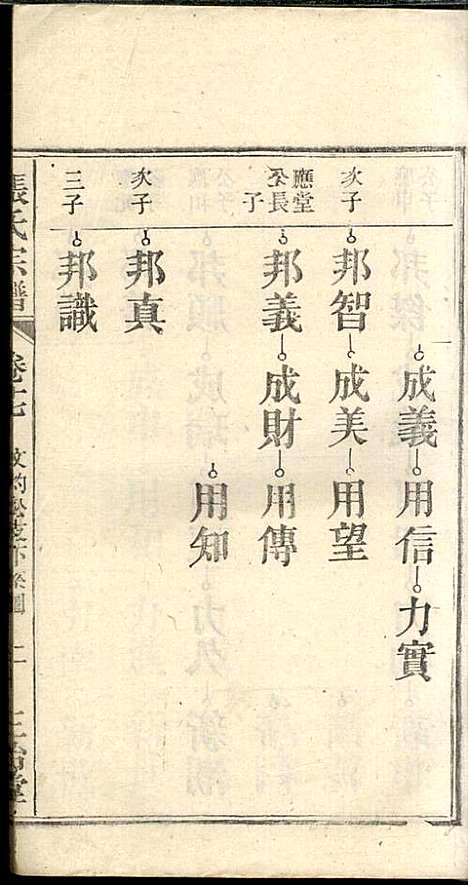 成義 用信 力實
次子 邦智 成美 用望
應堂公長子 邦義 成財 用傳
用知
次子 邦真
三子 邦識
張氏宗譜 卷十七